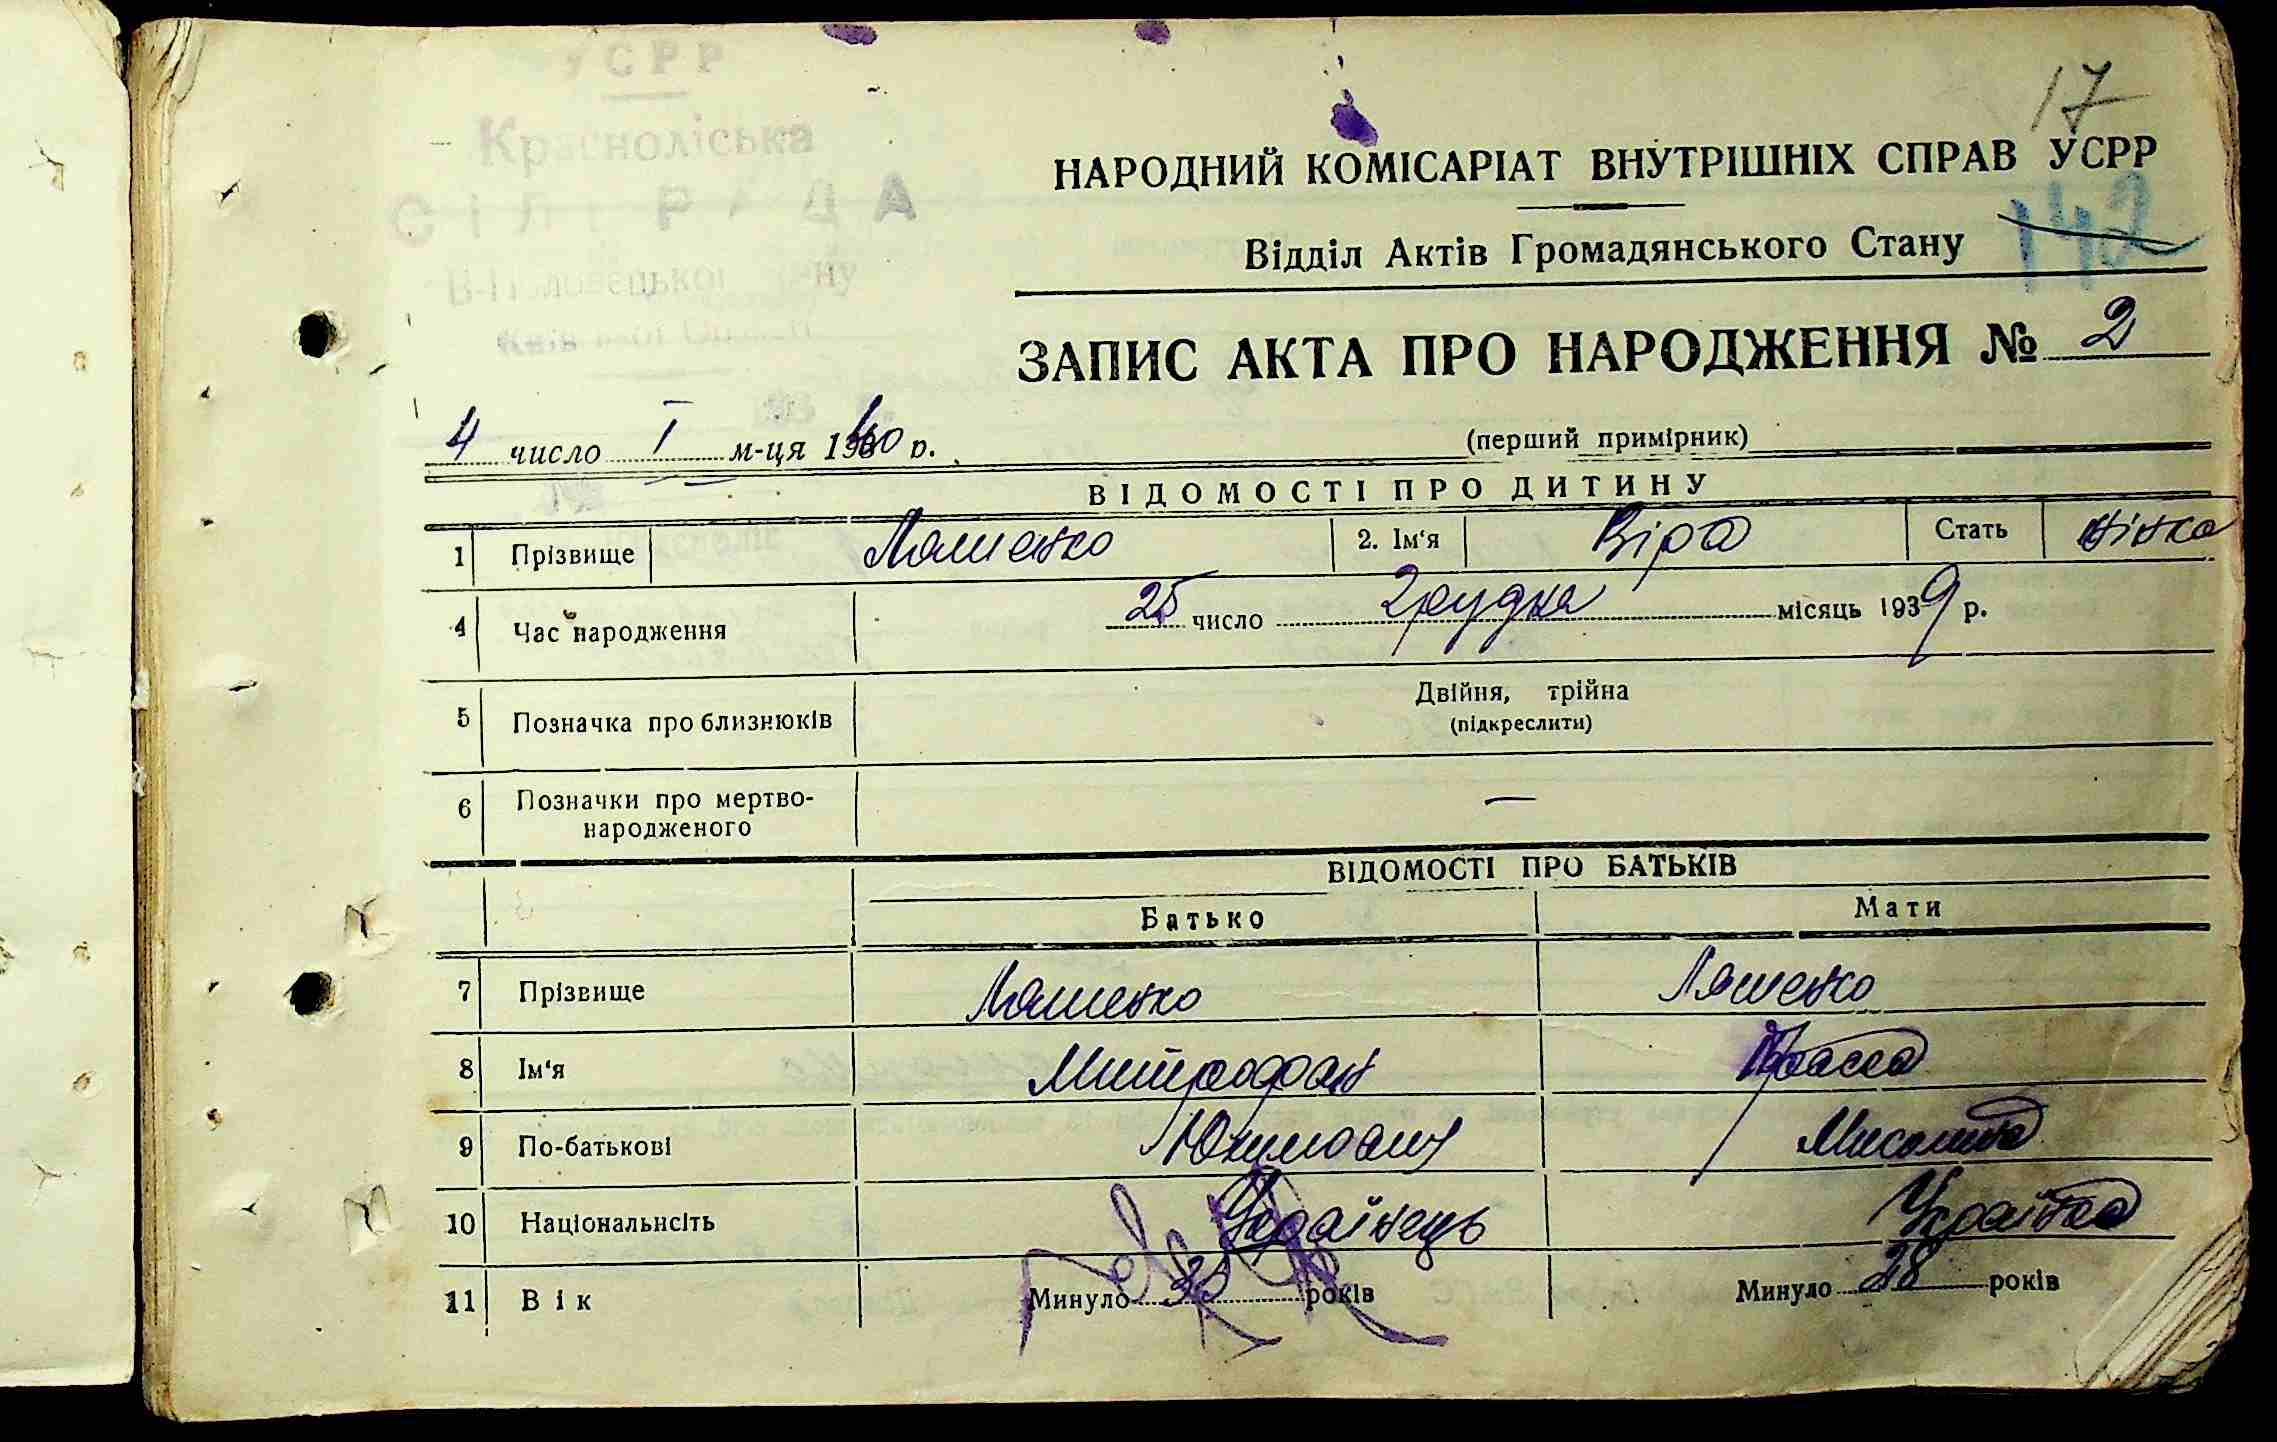 17
УСРР
Красноліська
СІЛЬРАДА
НАРОДНИЙ КОМІСАРІАТ ВНУТРІШНІХ СПРАВ УСРР
142
Відділ Актів Громадянського Стану
ЗАПИС АКТА ПРО НАРОДЖЕННЯ № 2
4 число І м-ця 1940 р.
(перший примірник)
ВІДОМОСТІ ПРО ДИТИНУ
1 Прізвище Ляшенко 2. Ім'я Віра Стать жінка
4 Час народження 25 число грудня місяць 1939 р.
5 Позначка про близнюків Двійня, трійна
(підкреслити)
6 Позначки про мертво-
народженого —
ВІДОМОСТІ ПРО БАТЬКІВ
Батько Мати
7 Прізвище Ляшенко Ляшенко
8 Ім'я Митрофан
9 По-батькові
10 Національнсіть Українець Українка
11 Вік Минуло 35 років Минуло 28 років